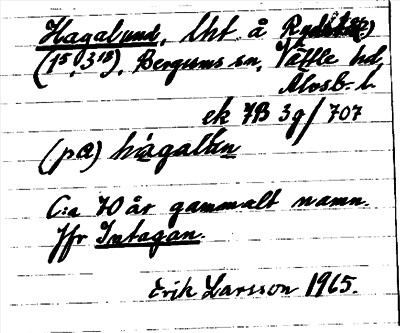 Hagalund, lht. å
(1⁵, 3¹⁸), Bergums sn, Vättle hd,
Älvsb. l.
ek 7B 3g/707
(pa) hågalun
C:a 70 år gammalt namn.
Jfr Intagan.
Erik Larsson 1965.